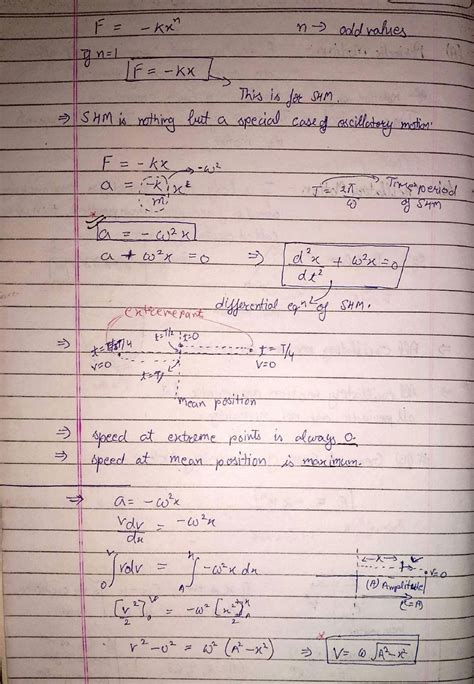 F = -kxⁿ n → odd values
If n=1
F = -kx
This is for SHM.
⇒ SHM is nothing but a special case of oscillatory motion.
F = -kx
a = (-k/m) x → -ω² T = 2π/ω Time period of SHM
a = -ω²x
a + ω²x = 0 ⇒ d²x/dt² + ω²x = 0
differential eqⁿ of SHM.
extreme point
⇒ t=T/2 t=0
t=3T/4 t=T/4
v=0 v=0
mean position
⇒ speed at extreme points is always 0.
⇒ speed at mean position is maximum.
⇒ a = -ω²x
vdv/dx = -ω²x
∫₀ᵛ vdv = ∫ₐˣ -ω²x dx
x v v=0
(A) Amplitude
(x=A)
[v²/2]₀ᵛ = -ω² [x²/2]ₐˣ
v² - 0² = ω² (A² - x²) ⇒ V = ω √A²-x²